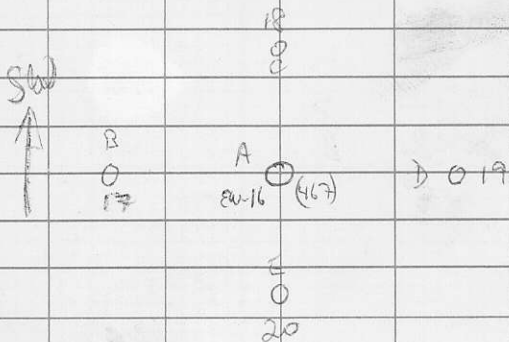 18
C
B
A
17
EW-16 (467)
D 19
E
20